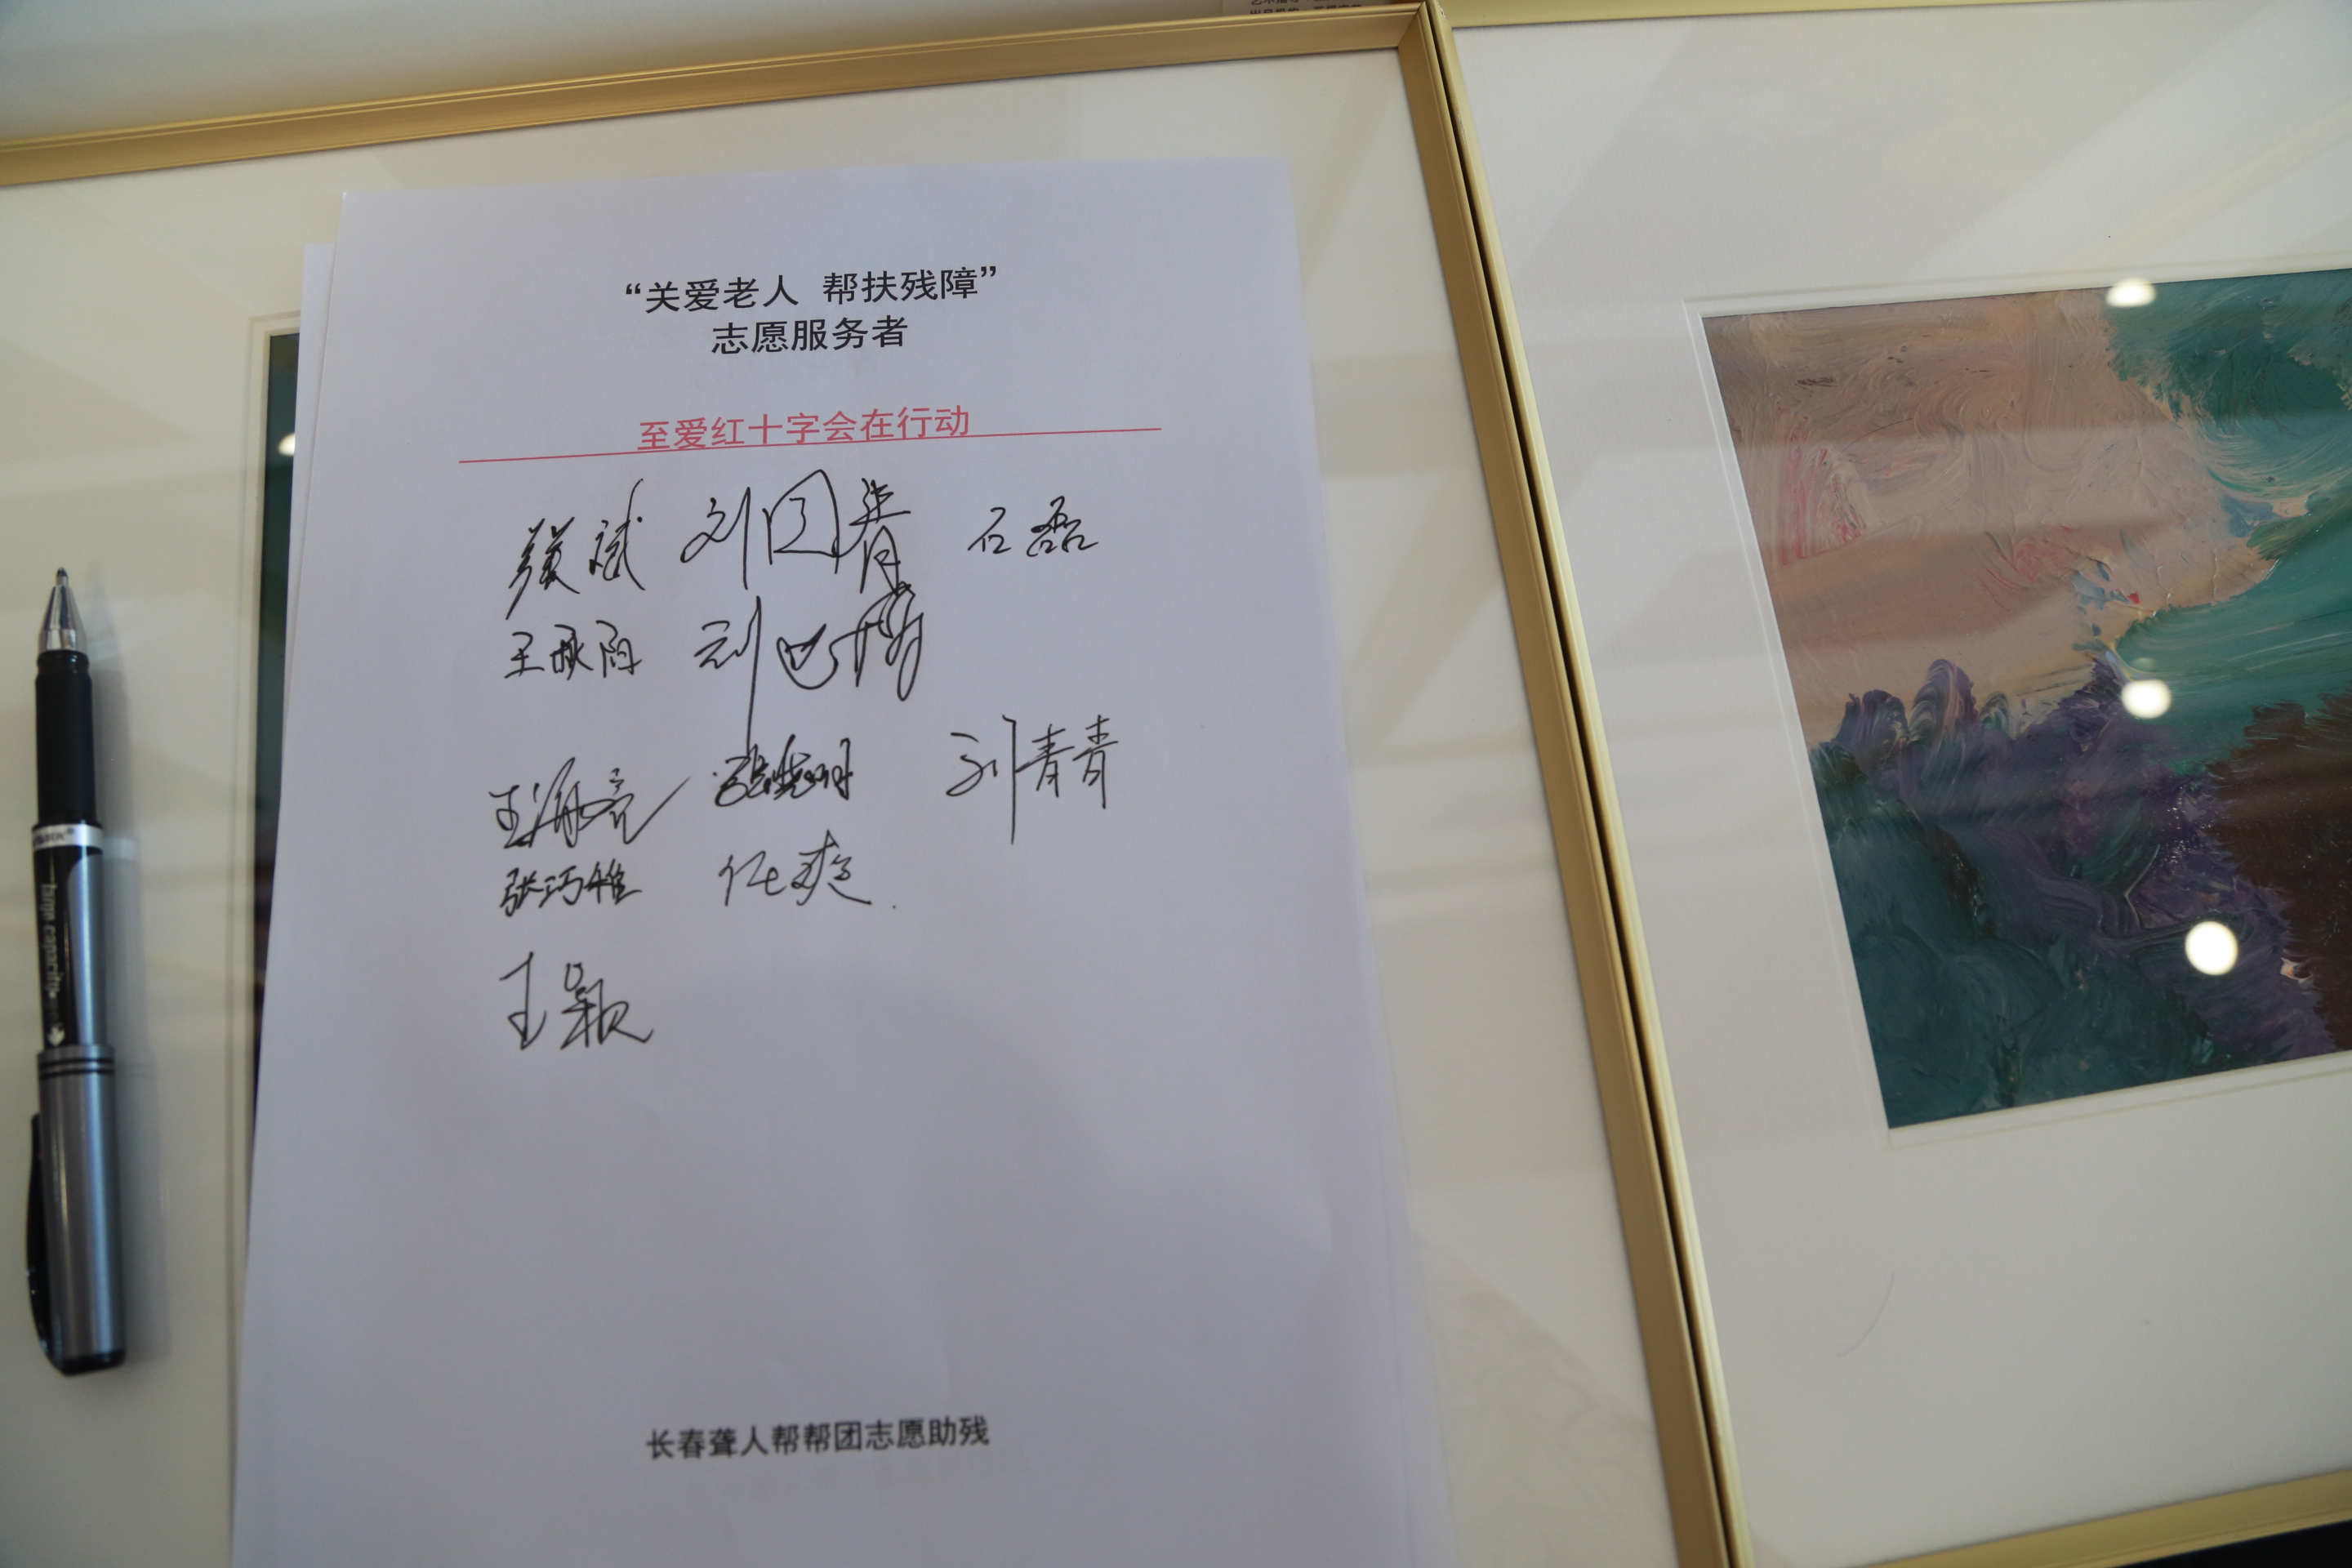 “关爱老人 帮扶残障”
志愿服务者
至爱红十字会在行动
刘国青 石磊
刘
王海亮 刘青青
张巧雅 任爽
王颖
长春聋人帮帮团志愿助残
large capacity